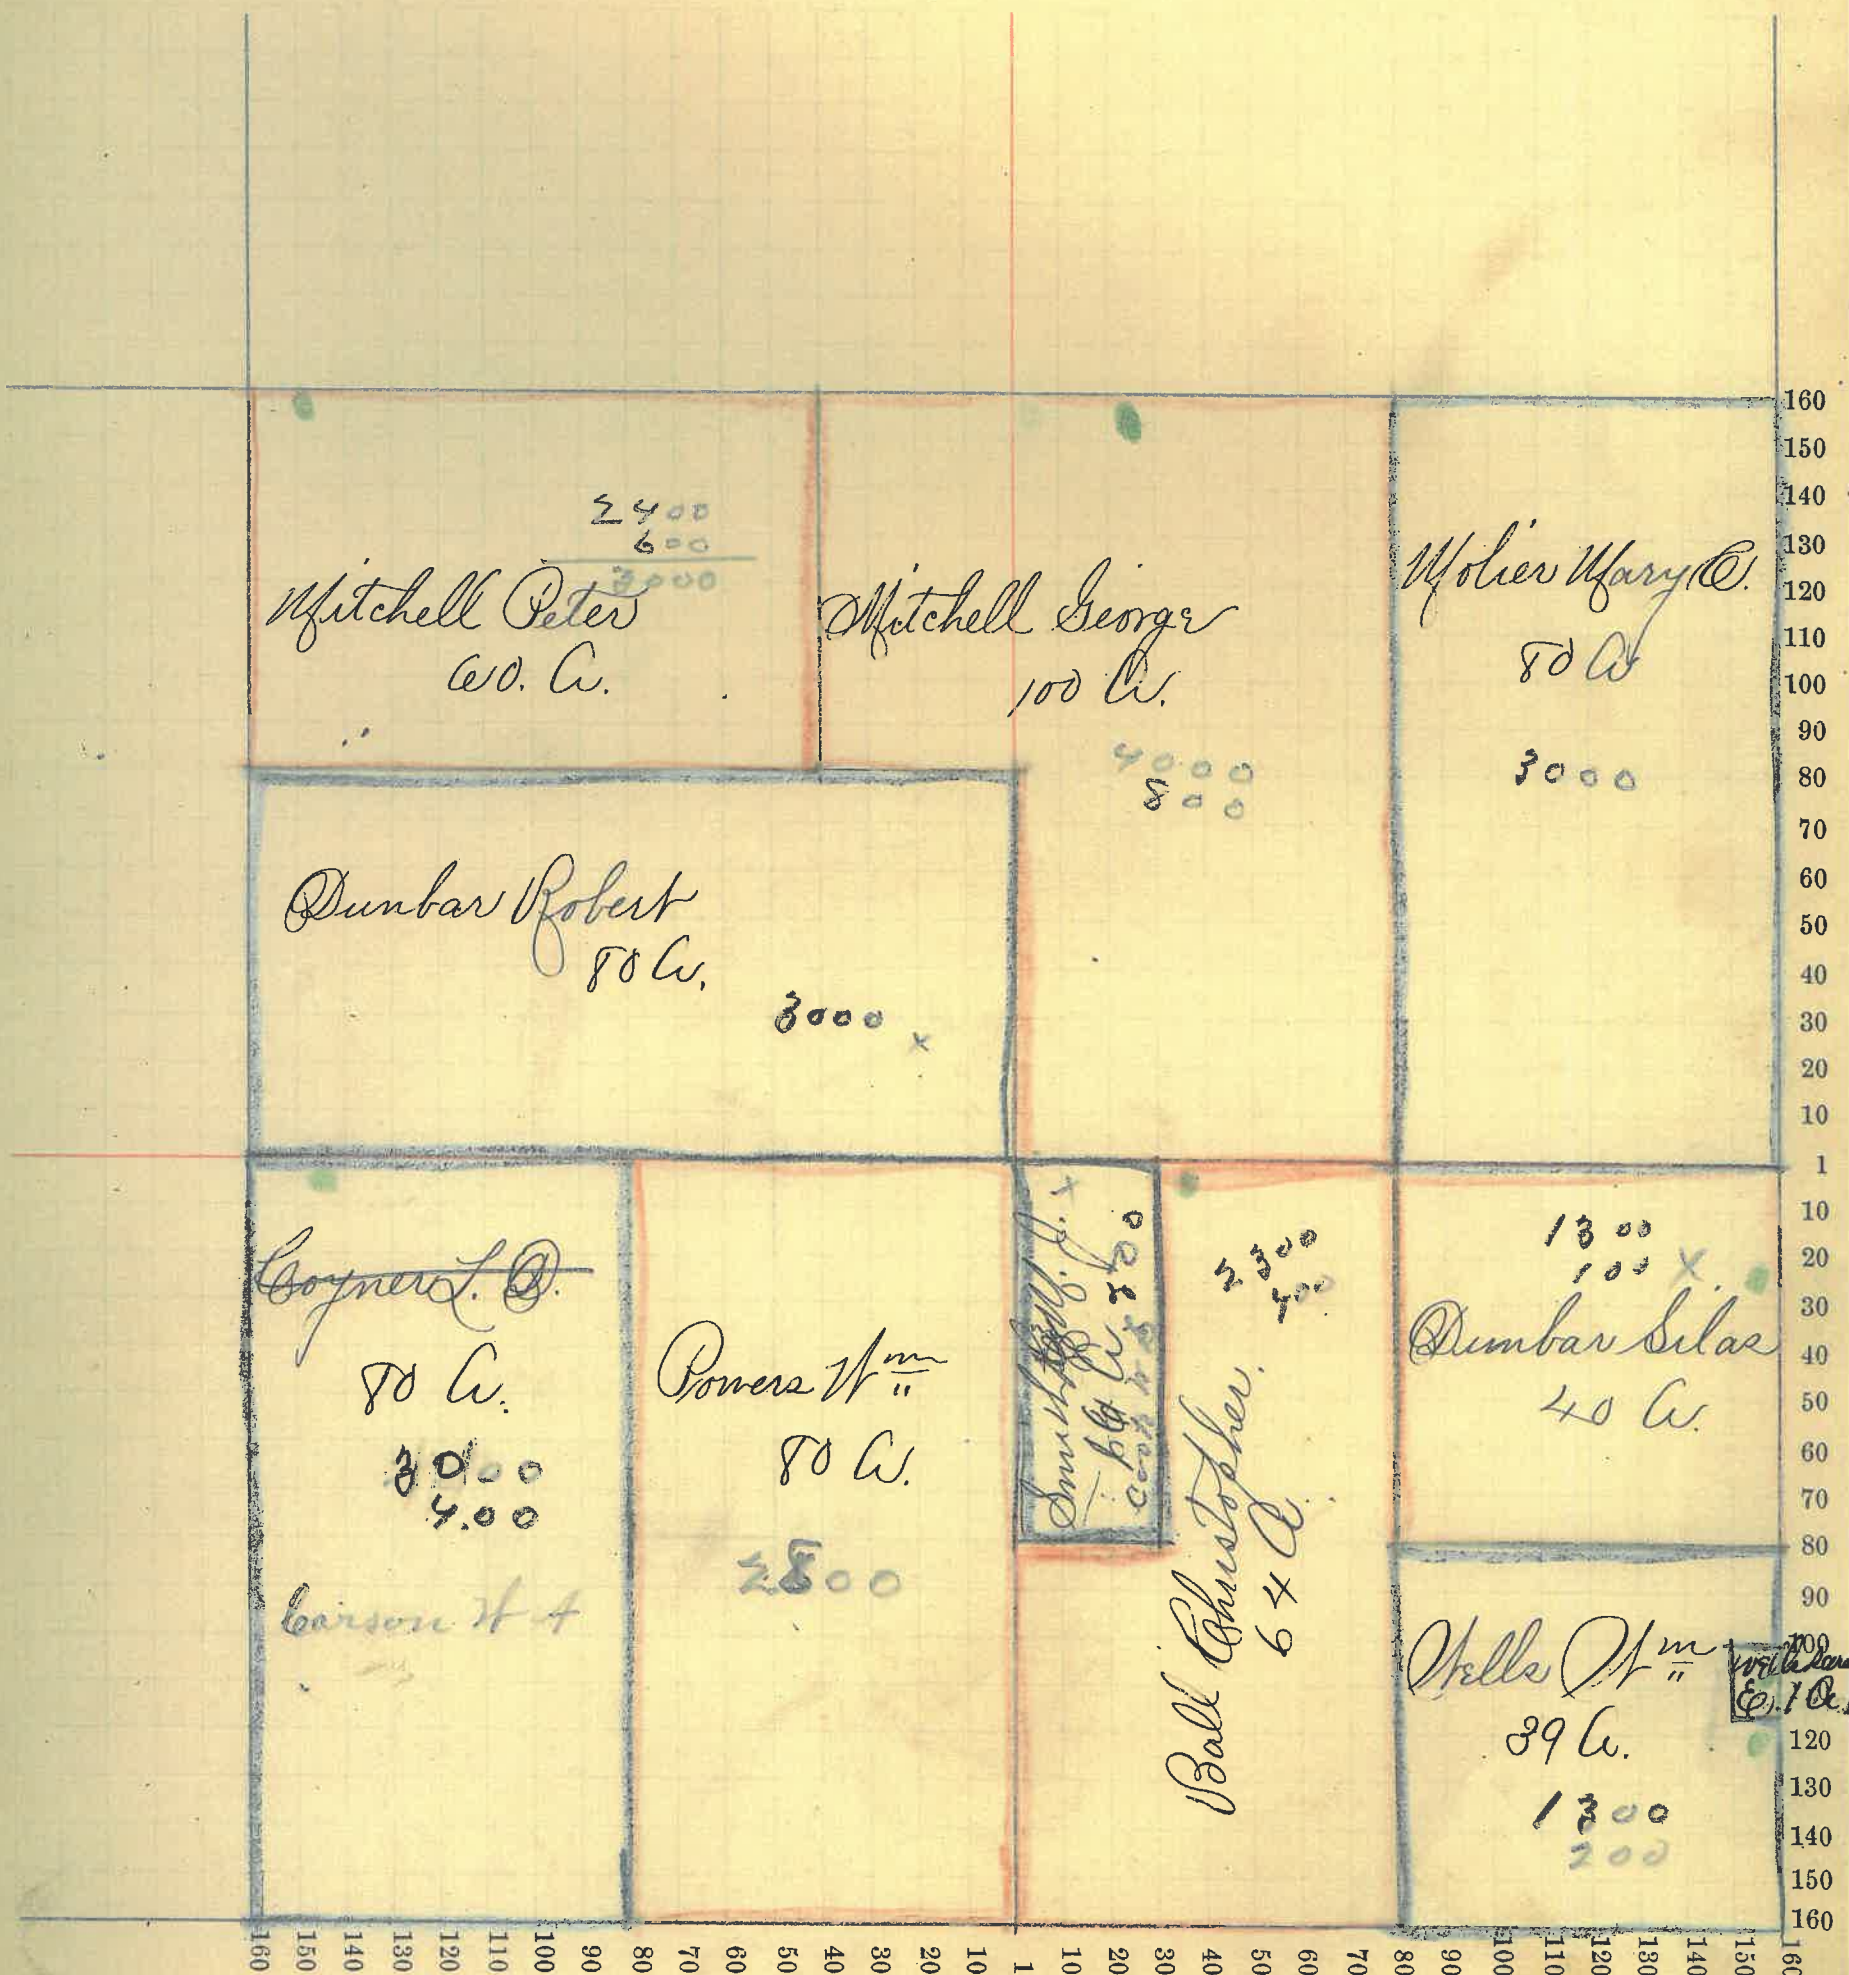 2400
600
3000
Mitchell Peter
60. A.
Mitchell George
100 A.
4000
800
Molier Mary C.
80 A
3000
Dunbar Robert
80 A.
3000 x
Coyner L. D.
80 A.
3000
4.00
Carson W A
Powers Wm
80 A.
2800
x
800
2300
400
Ball Christopher.
64 A
1300
100 x
Dunbar Silas
40 A.
Wells Wm
39 A.
1300
200
E. 1 A.
160
150
140
130
120
110
100
90
80
70
60
50
40
30
20
10
1
10
20
30
40
50
60
70
80
90
100
120
130
140
150
160
160 150 140 130 120 110 100 90 80 70 60 50 40 30 20 10 1 10 20 30 40 50 60 70 80 90 100 110 120 130 140 150 160